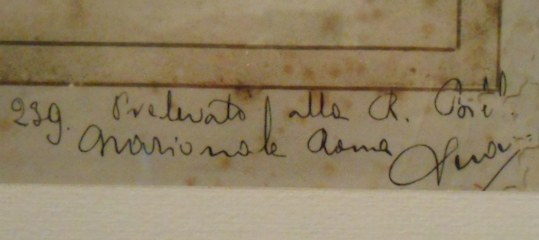 239. Prelevato alla R. Bibl.
Nazionale Roma